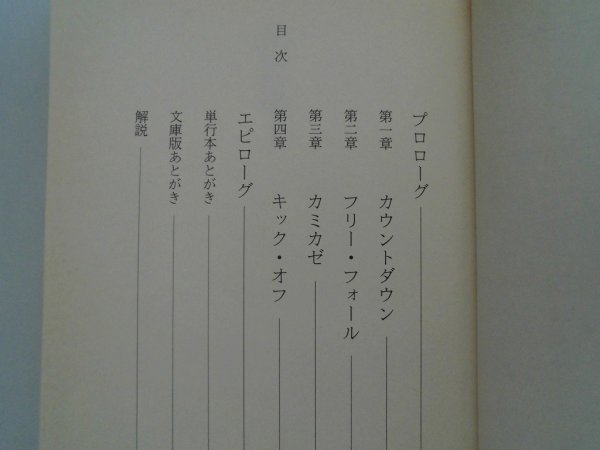 目次
プロローグ
第一章 カウントダウン
第二章 フリー・フォール
第三章 カミカゼ
第四章 キック・オフ
エピローグ
単行本あとがき
文庫版あとがき
解説